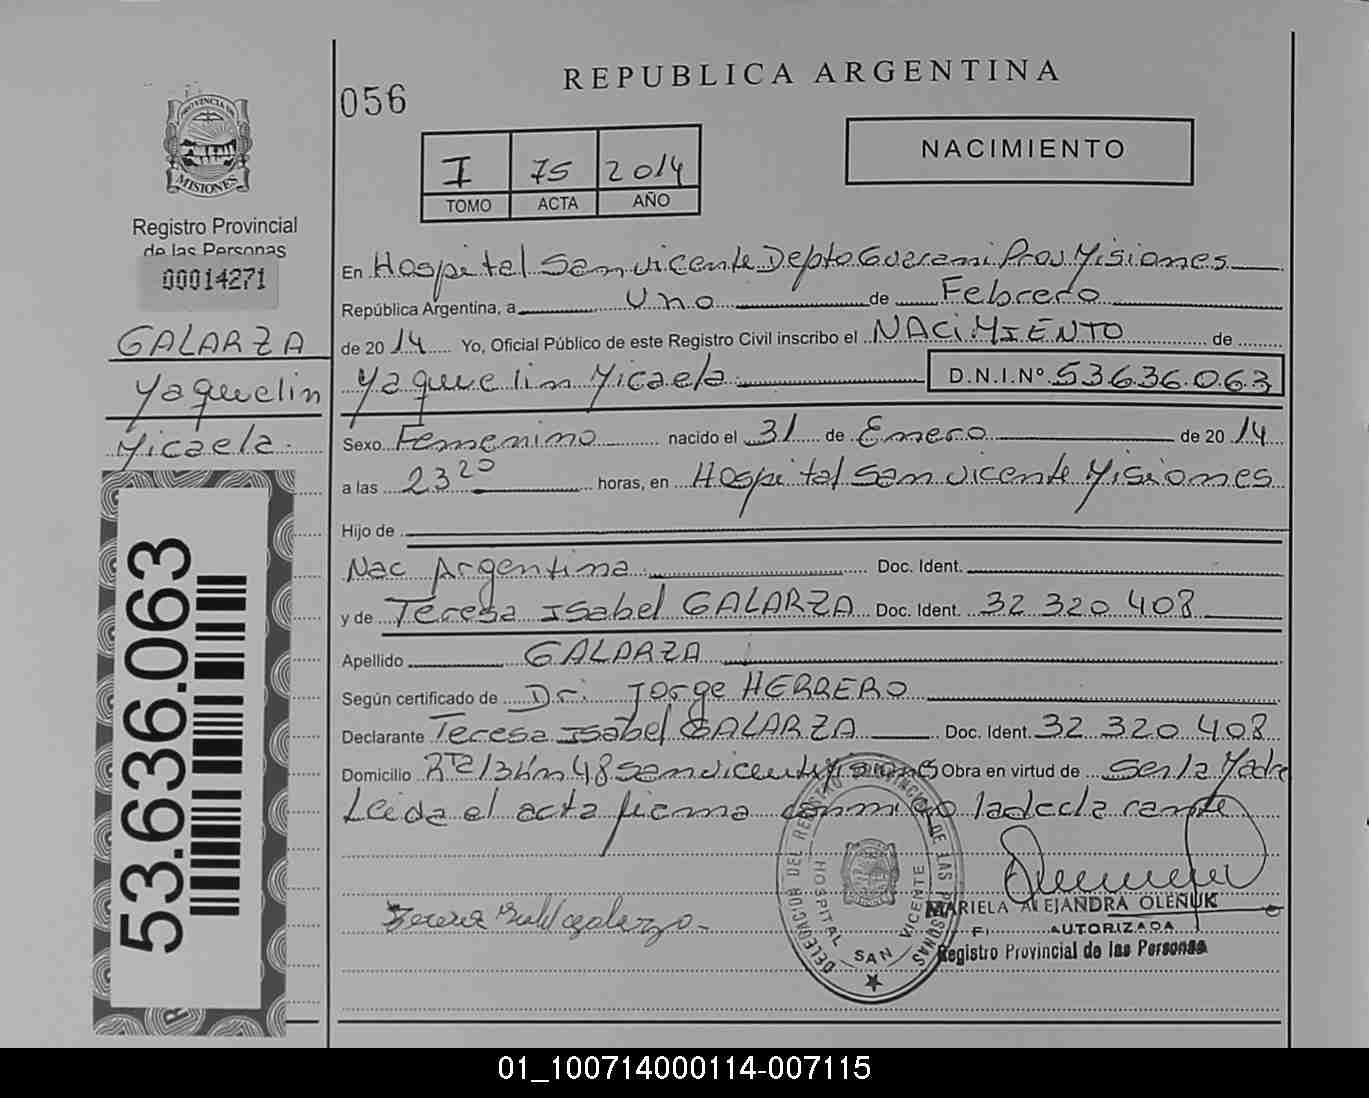 REPUBLICA ARGENTINA
056
NACIMIENTO
I 75 2014
TOMO ACTA AÑO
PROVINCIA DE
MISIONES
Registro Provincial
de las Personas
00014271
GALARZA
Yaquelin
Micaela
53.636.063
En Hospital San Vicente Depto Guarani Prov Misiones
República Argentina, a Uno de Febrero
de 2014 Yo, Oficial Público de este Registro Civil inscribo el NACIMIENTO de
Yaquuelin Micaela D.N.I.Nº 53.636.063
Sexo Femenino nacido el 31 de Enero de 2014
a las 23 20 horas, en Hospital San Vicente Misiones
Hijo de
Nac Argentina Doc. Ident.
y de Teresa Isabel GALARZA Doc. Ident. 32 320 408
Apellido GALARZA
Según certificado de Dr. Jorge HERRERO
Declarante Teresa Isabel GALARZA Doc. Ident. 32 320 408
Domicilio Rta 13 km 48 San Vicente Misiones Obra en virtud de Ser la Madre
Leida el acta firma conmigo la declarante
DELEGACION DEL REGISTRO PROVINCIAL DE LAS PERSONAS
HOSPITAL SAN VICENTE
MARIELA ALEJANDRA OLEÑUK
AUTORIZADA
Registro Provincial de las Personas
01_100714000114-007115